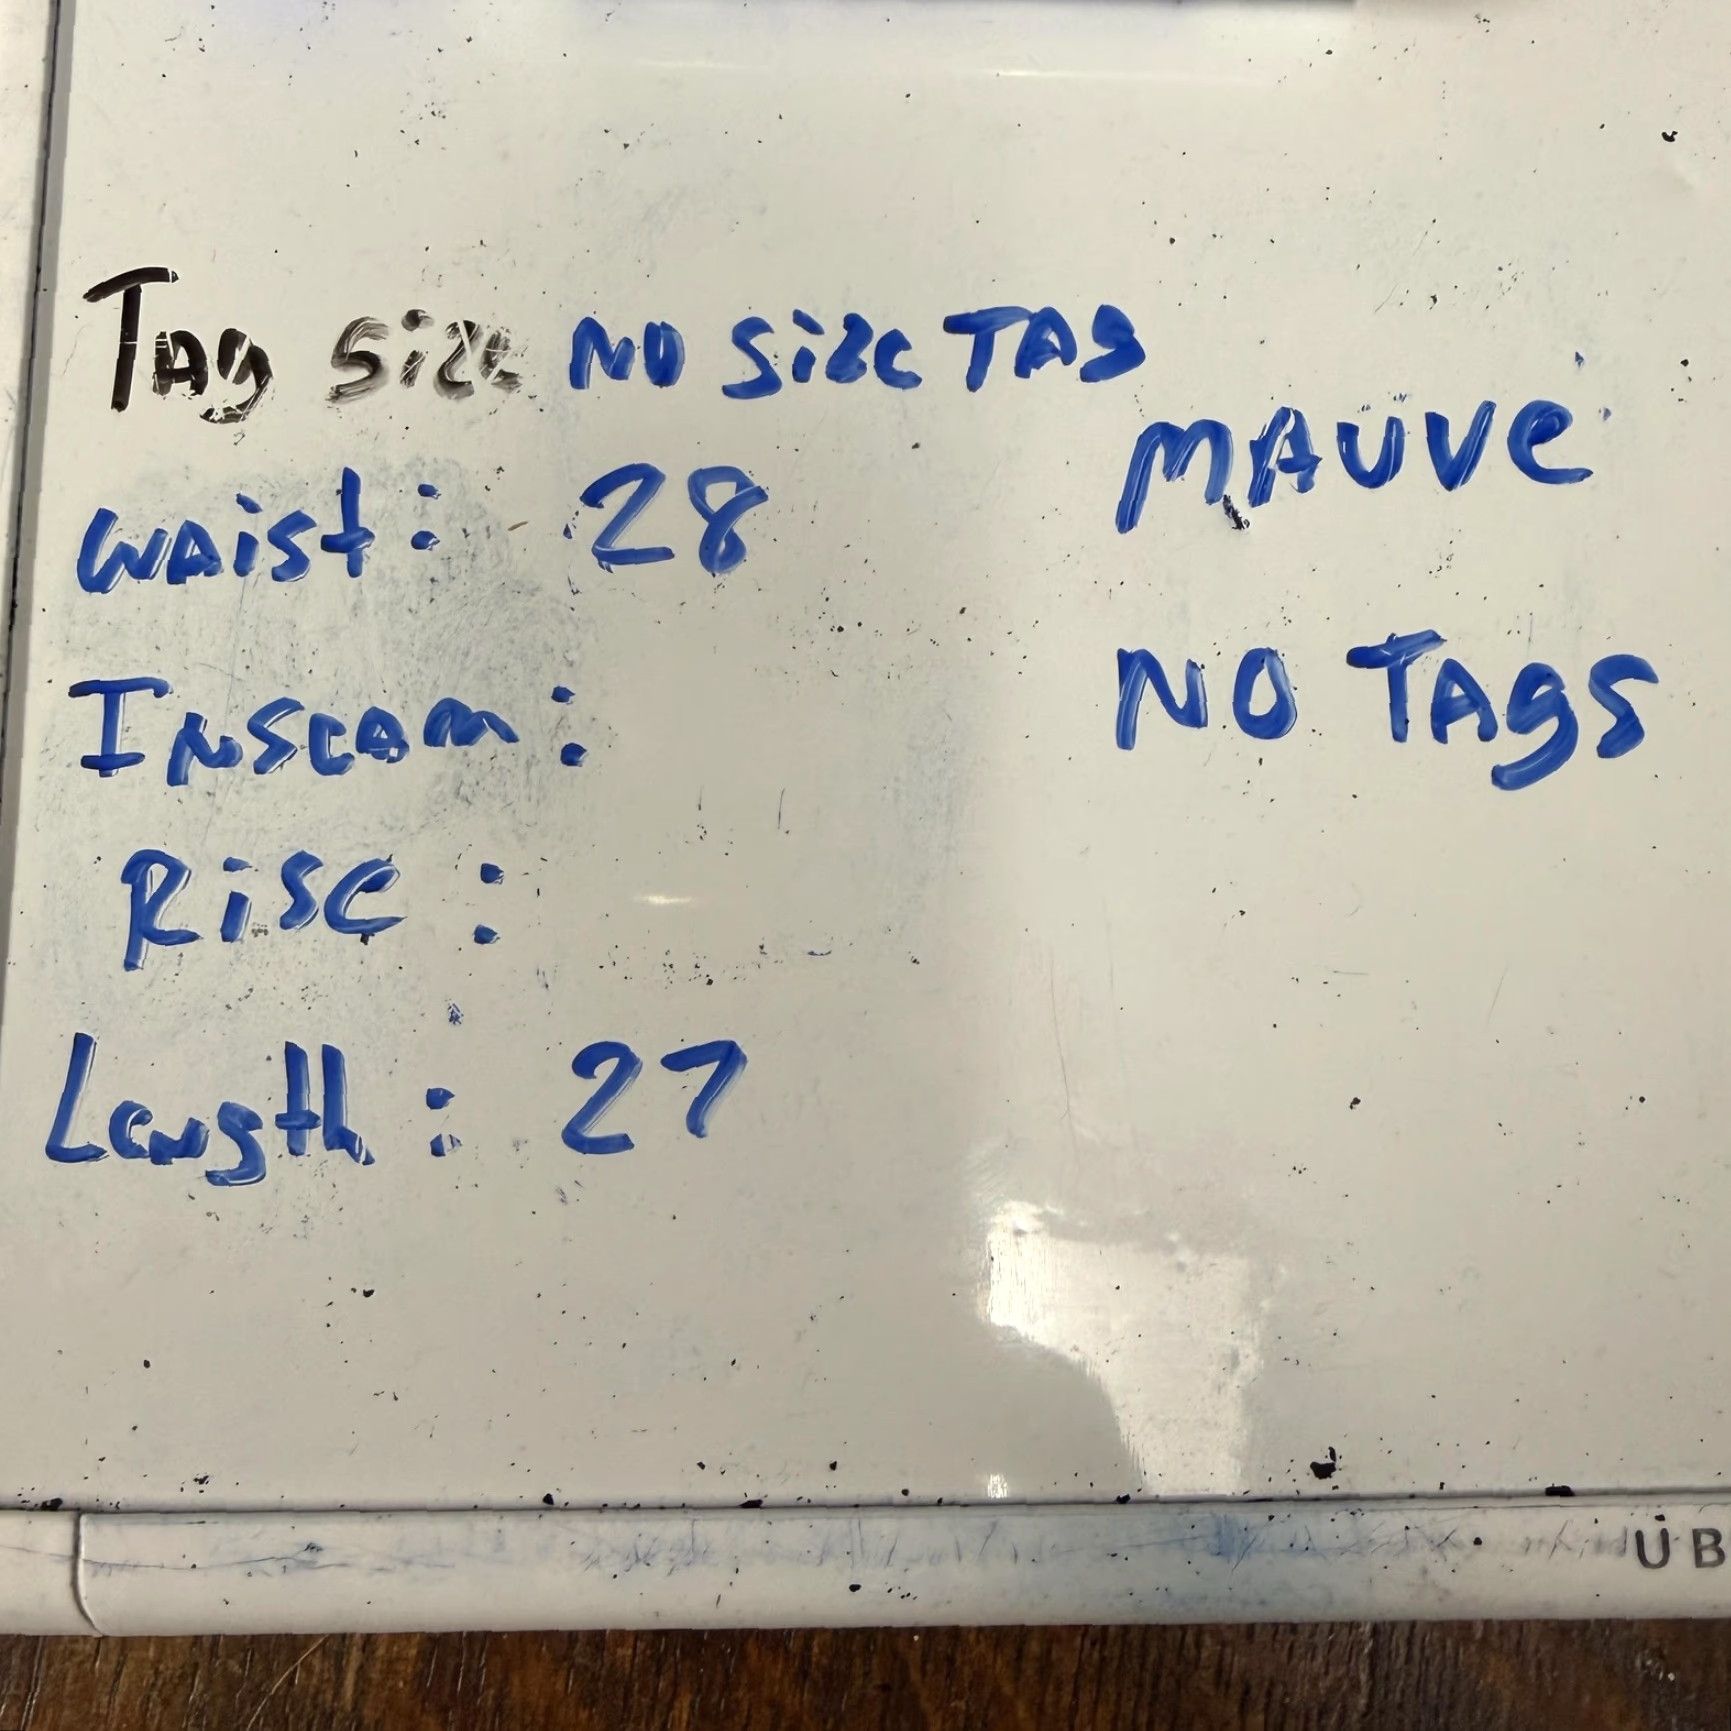 Tag size NO Size TAG
MAUVE
Waist: 28
Inseam:
NO TAgs
Rise:
Length: 27
UB